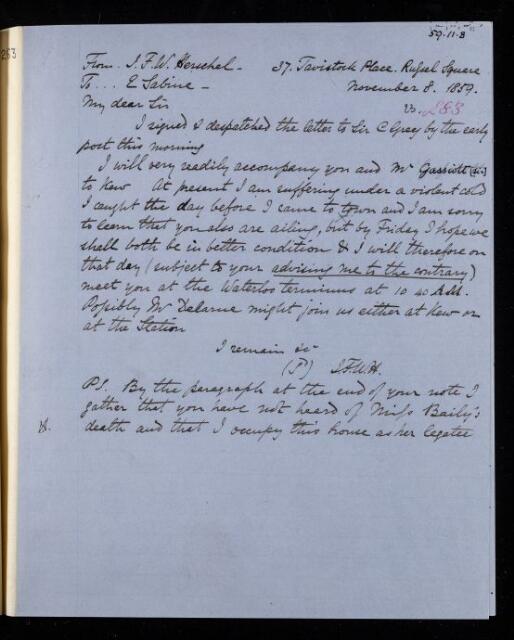 59.11.8
253
From J.F.W. Herschel - 37. Tavistock Place. Russel Square
To... E Sabine - November 8. 1859.
My dear Sir 23. 283
I signed & despatched the letter to Sir C Grey by the early
post this morning
I will very readily accompany you and Mr Gassiott (sic)
to Kew At present I am suffering under a violent cold
I caught the day before I came to town and I am sorry
to learn that you also are ailing, but by Friday I hope we
shall both be in better condition & I will therefore on
that day (subject to your advising me to the contrary)
meet you at the Waterloo terminus at 10 40 A.M.
Possibly Mr Delarue might join us either at Kew or
at the Station
I remain &c
J.F.W.H.
P.S. By the paragraph at the end of your note I
gather that you have not heard of Miss Baily's
death and that I occupy this house as her legatee